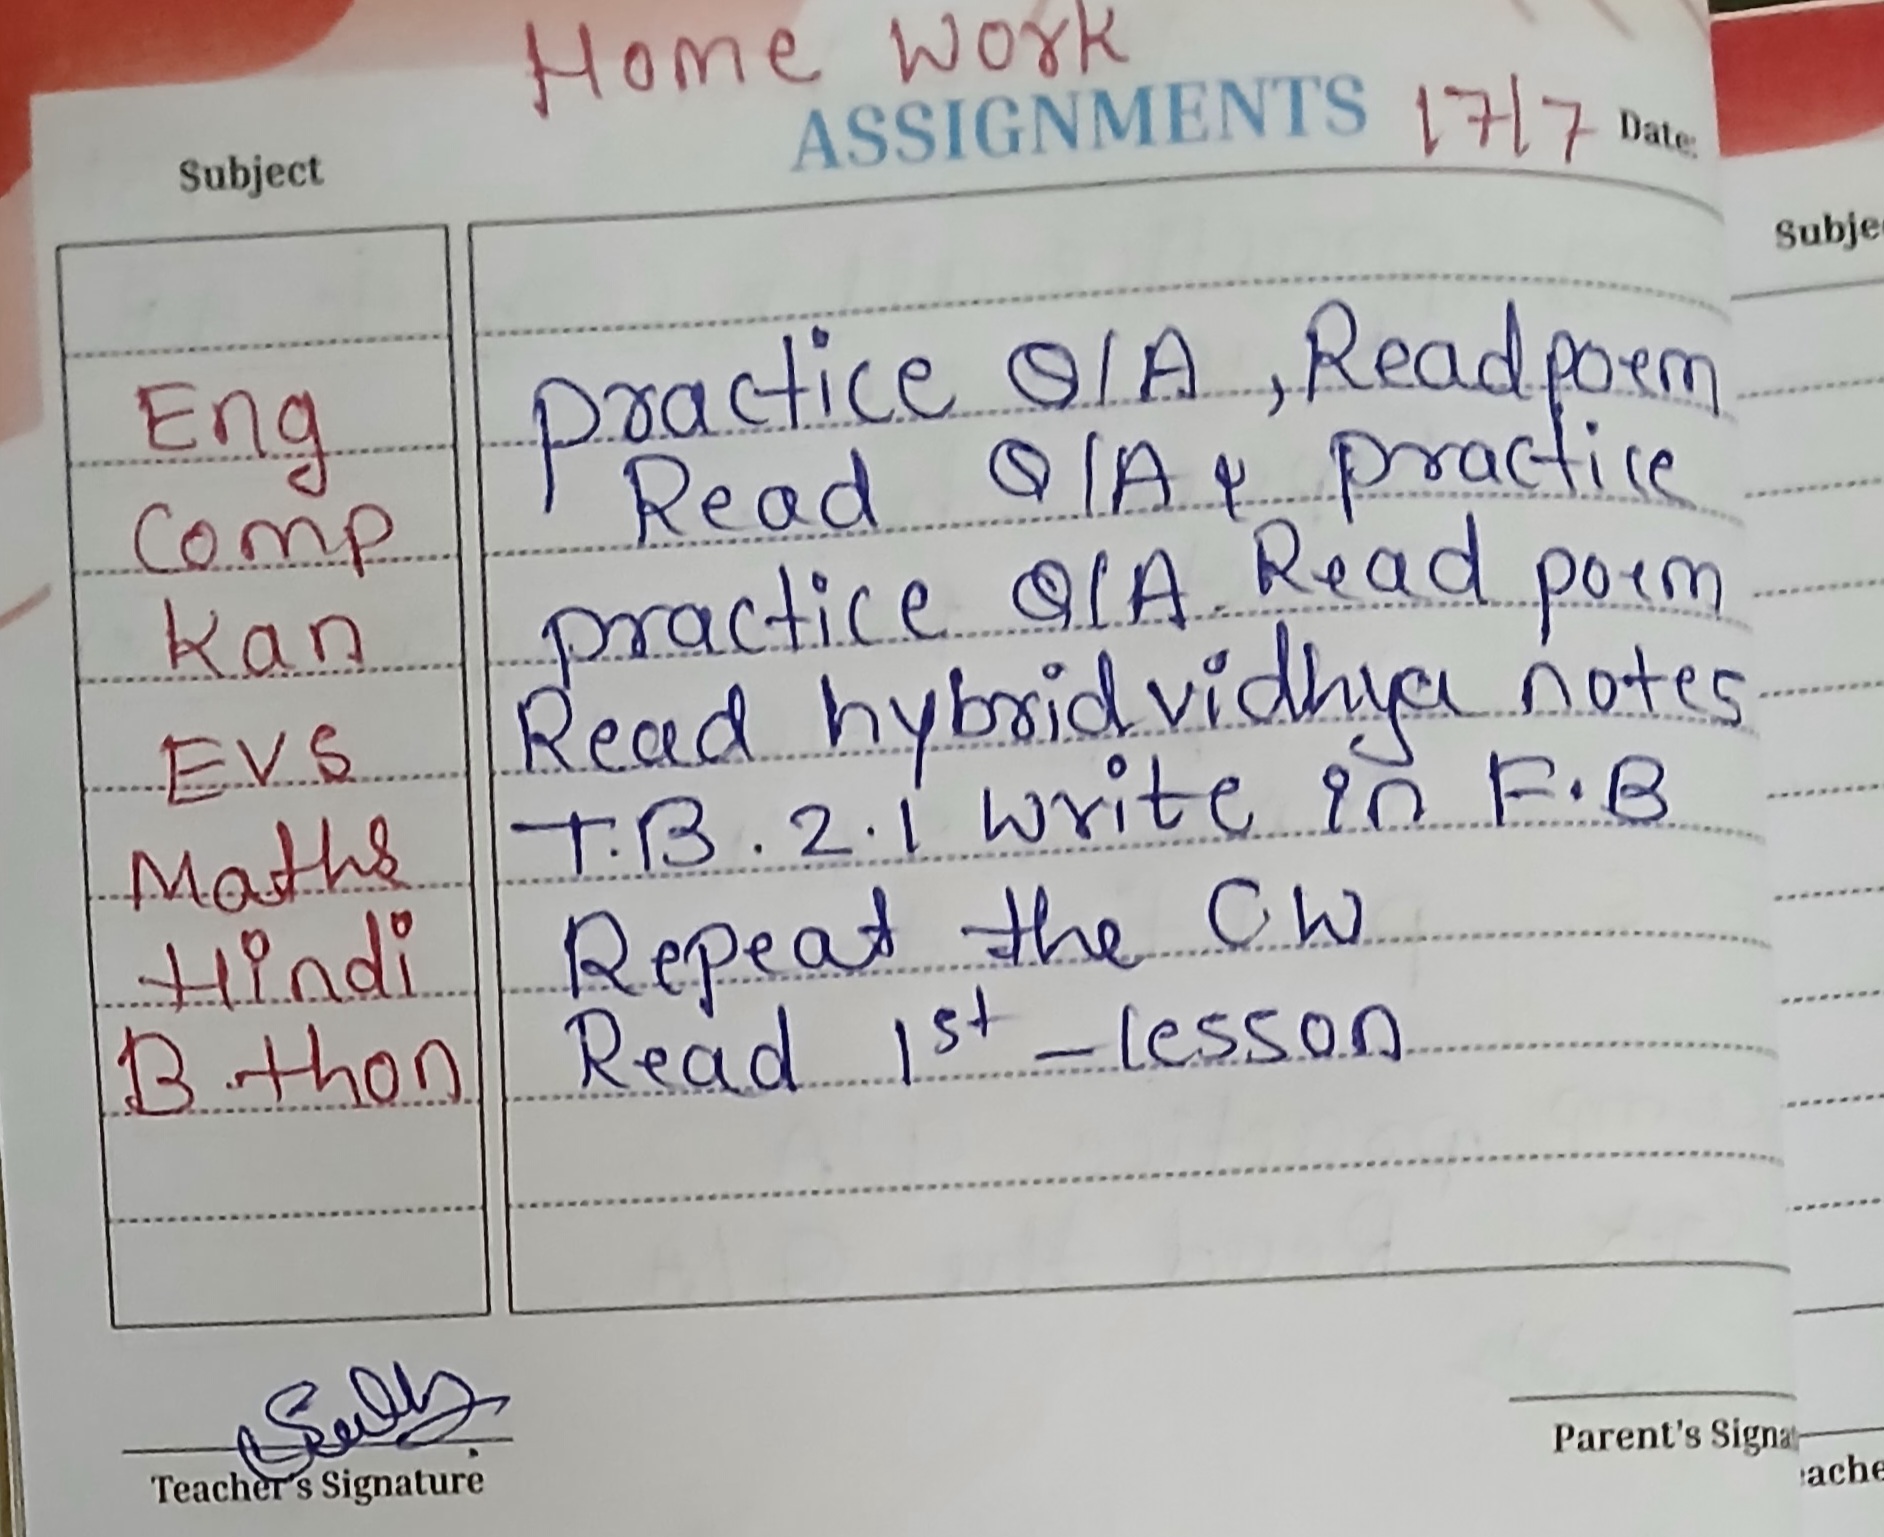 Home Work
ASSIGNMENTS 17/7 Date:
Subject
Subje
Eng practice Q/A, Read poem
Comp Read Q/A & practice
Kan practice Q/A. Read poem
EVS Read hybrid vidhya notes
Maths T.B. 2.1 write in F.B
Hindi Repeat the CW
B.thon Read 1st - lesson
Teacher's Signature
Parent's Signa
eache